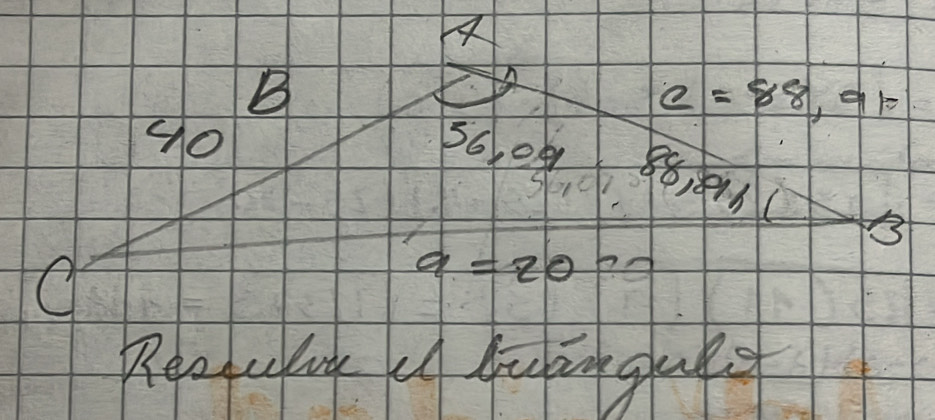 A
B
c = 88,91
40
56,09
88,91
B
C
a = 20
Resuelve el triángulo